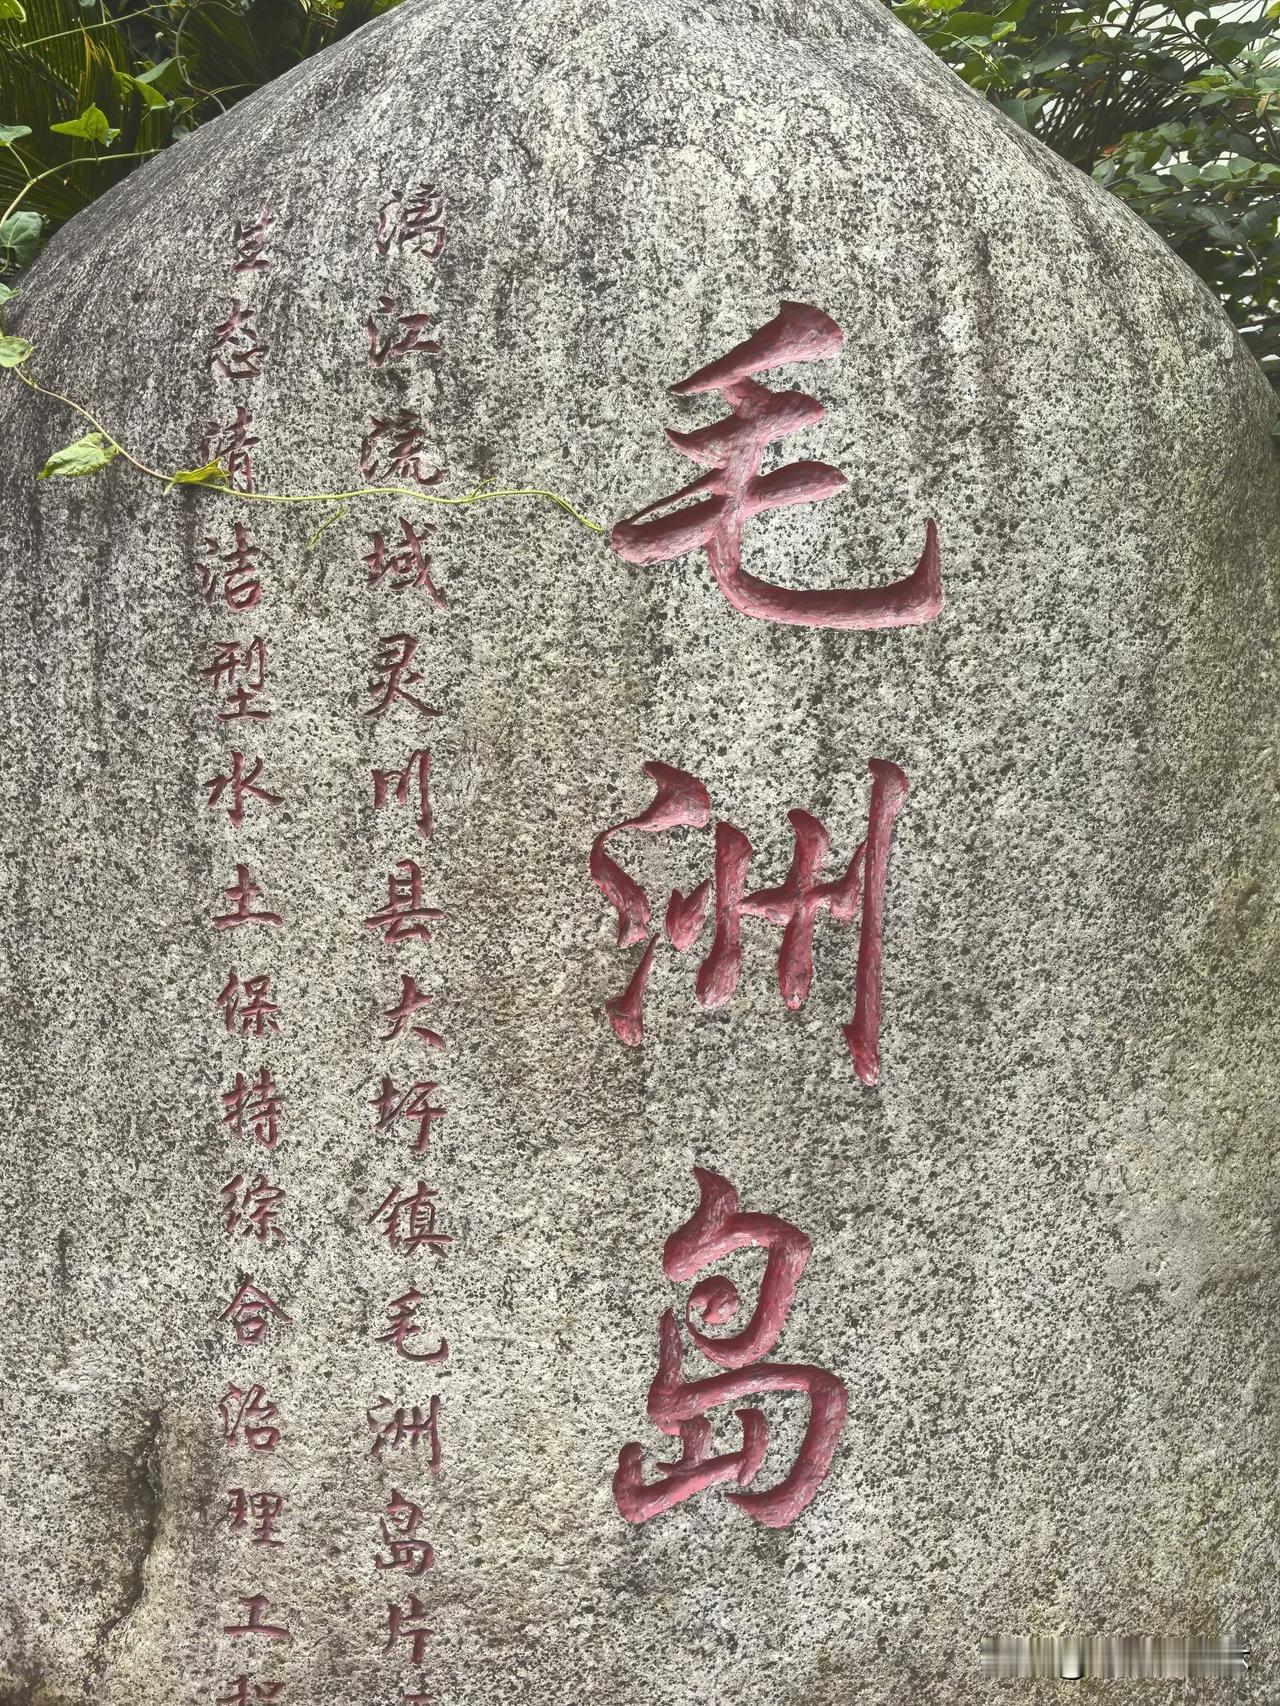 毛洲岛
漓江流域灵川县大圩镇毛洲岛片
生态清洁型水土保持综合治理工程